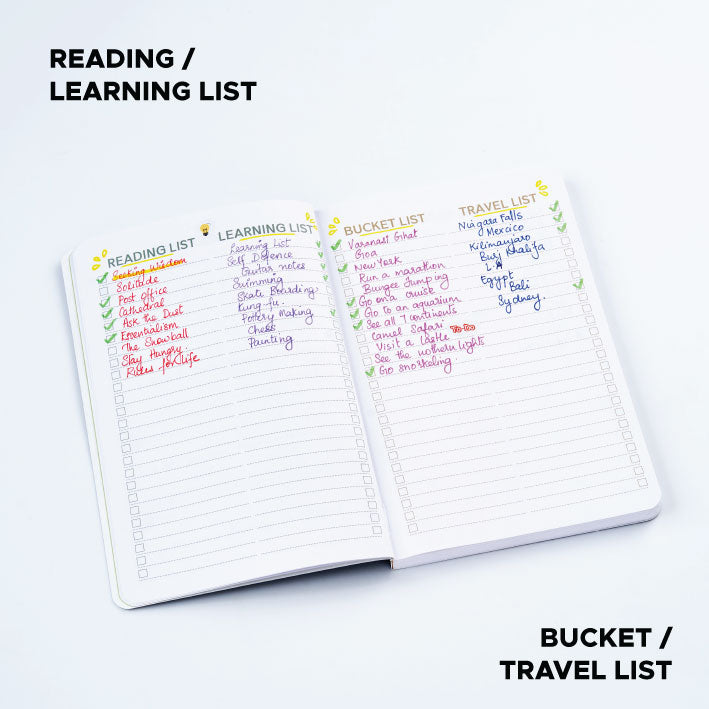 READING /
LEARNING LIST
READING LIST
Seeking Wisdom
Solitude
Post office
Cathedral
Ask the Dust
Essentialism
The Snowball
Stay Hungry.
Rules for life
LEARNING LIST
Learning List
Self Defence
Guitar notes
Swimming
Skate Boarding
Kung fu.
Pottery Making
Chess
Painting
BUCKET LIST
Varanasi Ghat
Gioa
New York
Run a marathon
Bungee Jumping
Go on a cruise
Go to an aquarium
See all 7 continents
Camel Safari
Visit a castle
See the nothern lights
Go snorkeling
TRAVEL LIST
Niagara Falls
Mexcico
Kilimanjaro
Burj Khalifa
L.A
Egypt
Bali
Sydney.
BUCKET /
TRAVEL LIST